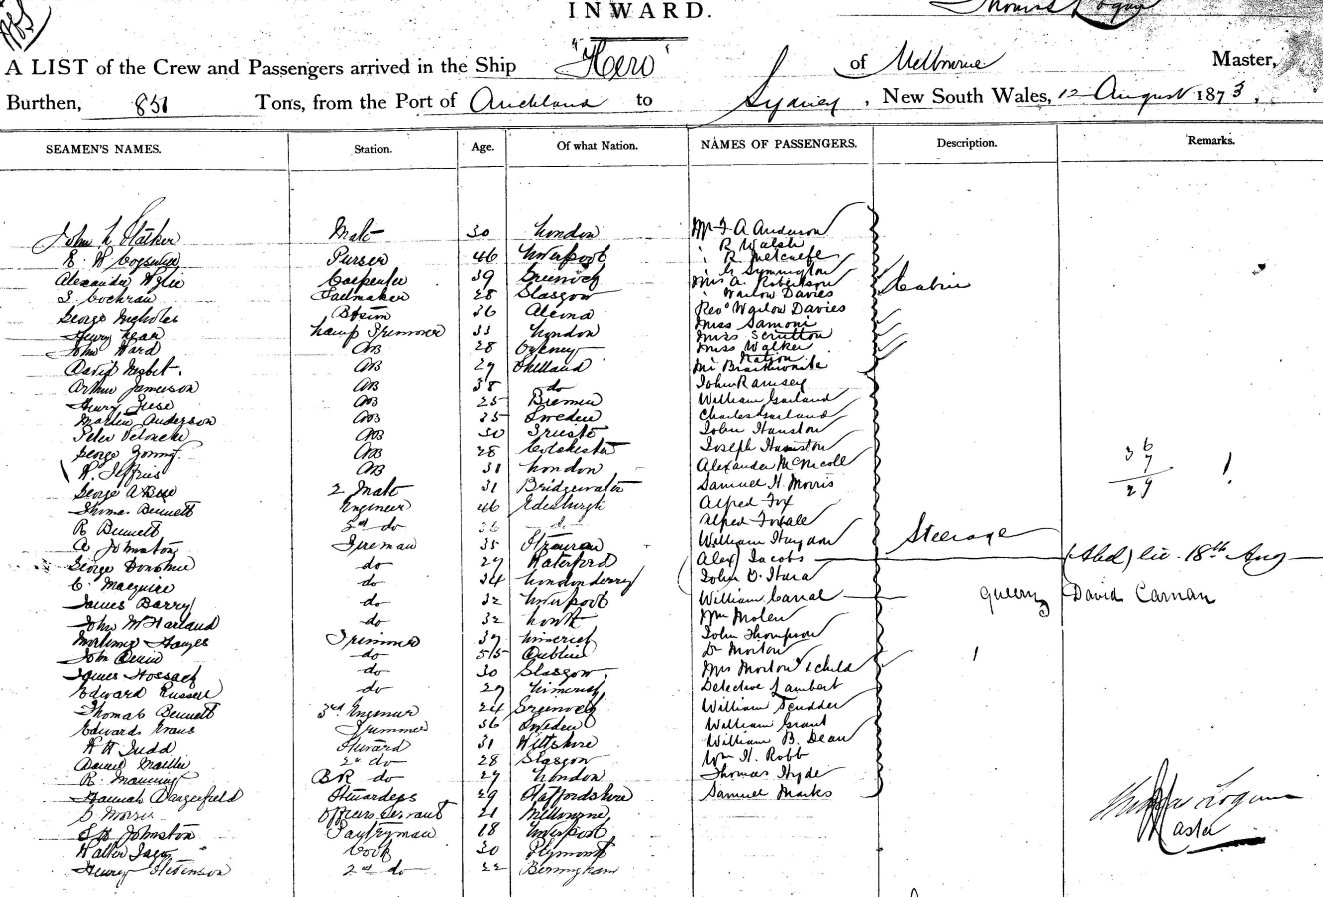 INWARD.
Thomas Logan
A LIST of the Crew and Passengers arrived in the Ship "Hero" of Melbourne Master,
Burthen, 851 Tons, from the Port of Auckland to Sydney, New South Wales, 12 August 1873,
SEAMEN'S NAMES. Station. Age. Of what Nation. NAMES OF PASSENGERS. Description. Remarks.
John Mate 30 London Mr F A Anderson
Purser 46 Liverpool " R Walsh
Alexander Wylie Carpenter 39 Greenock " R Metcalfe
" Symmington
J. Cochran Sailmaker 28 Glasgow Mrs A. Robertson Cabin
" Warlow Davies
George Nicholes 36 Revd Warlow Davies
Henry Lamp Trimmer 33 London Miss Samoni
John Ward AB 28 Orkney Miss Scrutton
Miss Walker
David Nesbit. AB 27 Nation
Mr Braithwaite
Arthur Jameson AB 38 do John Ramsey
Henry AB 25 Bremen William Garland
Martin Anderson AB 35 Sweden Charles Garland
Peter AB 30 Trieste John Hauston
George Young AB 28 Colchester Joseph
H. Jeffries AB 31 London Alexander McNicoll
36
7
29
George A 2 Mate 31 Bridgewater Samuel H. Morris
Thomas Bennett Engineer 46 Edinburgh Alfred Fox
R Bennett 2nd do 36 Alfred
A Johnston Fireman 35 William Steerage
George Donohue do 27 Waterford Alex Jacobs 18th Aug
C Macguire do 34 Londonderry John O'Hara
James Barry do 32 Liverpool William Carnal query David Carnan
John W Harland do 32 Wm Molen
Mortimer Hayes Trimmer 37 Limerick John Thompson
John do 55 Dublin Dr Morton
James Hossack do 30 Glasgow Mrs Morton & 1 child 1
Edward Russell do 27 Limerick Detective Lambert
Thomas Bennett 3rd Engineer 24 Greenock William Scudder
Edward Evans Trimmer 36 Sweden William Grant
H H Judd Steward 31 Wiltshire William B. Dean
Daniel 2nd do 28 Glasgow Wm H. Robb
R. Manning BR do 27 London Thomas Hyde
Hannah Dangerfield Stewardess 29 Staffordshire Samuel Marks
C Morris Officers Servant 21 Melbourne
Johnston Pantryman 18 Liverpool
Thomas Logan
Master
Walter Cook 30 Plymouth
Henry Stevenson 2nd do 22 Birmingham